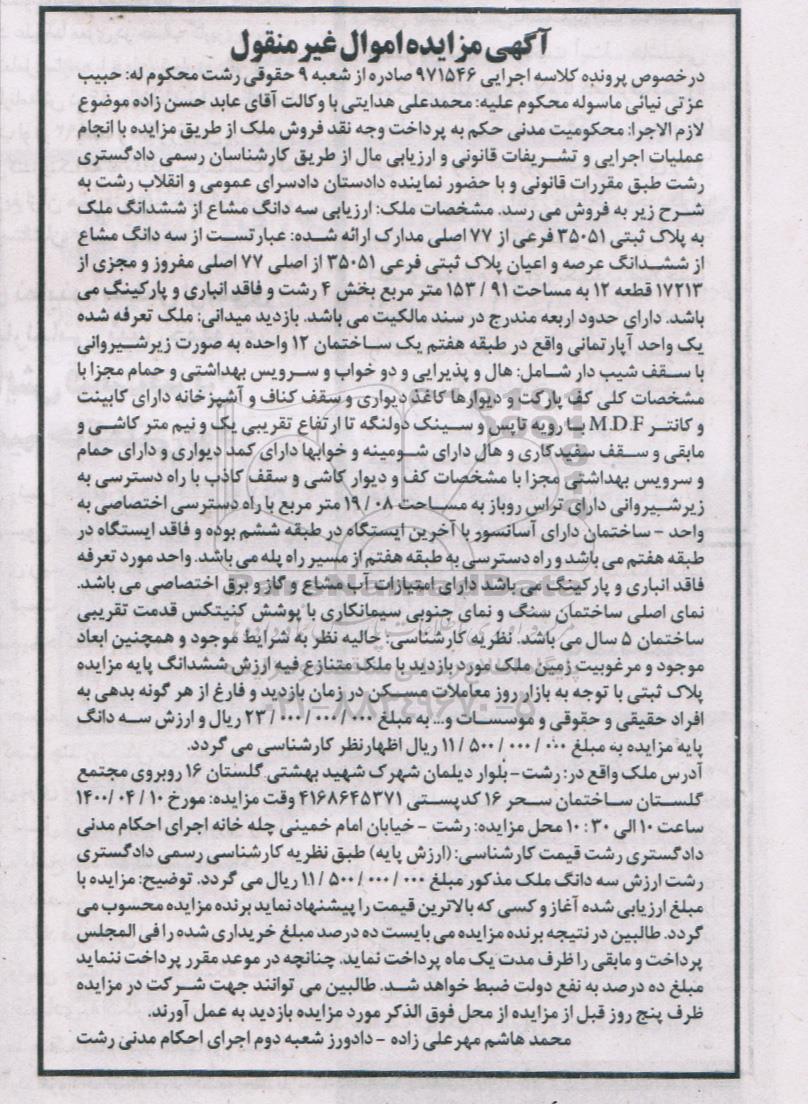 آگهی مزایده اموال غیر منقول
درخصوص پرونده کلاسه اجرایی ۹۷۱۵۴۶ صادره از شعبه ۹ حقوقی رشت محکوم له: حبیب
عزتی نیائی ماسوله محکوم علیه: محمدعلی هدایتی با وکالت آقای عابد حسن زاده موضوع
لازم الاجرا: محکومیت مدنی حکم به پرداخت وجه نقد فروش ملک از طریق مزایده با انجام
عملیات اجرایی و تشریفات قانونی و ارزیابی مال از طریق کارشناسان رسمی دادگستری
رشت طبق مقررات قانونی و با حضور نماینده دادستان دادسرای عمومی و انقلاب رشت به
شرح زیر به فروش می رسد. مشخصات ملک: ارزیابی سه دانگ مشاع از ششدانگ ملک
به پلاک ثبتی ۳۵۰۵۱ فرعی از ۷۷ اصلی مدارک ارائه شده: عبارتست از سه دانگ مشاع
از ششدانگ عرصه و اعیان پلاک ثبتی فرعی ۳۵۰۵۱ از اصلی ۷۷ اصلی مفروز و مجزی از
۱۷۲۱۳ قطعه ۱۲ به مساحت ۹۱ / ۱۵۳ متر مربع بخش ۴ رشت و فاقد انباری و پارکینگ می
باشد. دارای حدود اربعه مندرج در سند مالکیت می باشد. بازدید میدانی: ملک تعرفه شده
یک واحد آپارتمانی واقع در طبقه هفتم یک ساختمان ۱۲ واحده به صورت زیرشیروانی
با سقف شیب دار شامل: هال و پذیرایی و دو خواب و سرویس بهداشتی و حمام مجزا با
مشخصات کلی کف پارکت و دیوارها کاغذ دیواری و سقف کناف و آشپزخانه دارای کابینت
و کانتر M.D.F با رویه تاپس و سینک دولنگه تا ارتفاع تقریبی یک و نیم متر کاشی و
مابقی و سقف سفیدکاری و هال دارای شومینه و خوابها دارای کمد دیواری و دارای حمام
و سرویس بهداشتی مجزا با مشخصات کف و دیوار کاشی و سقف کاذب با راه دسترسی به
زیرشیروانی دارای تراس روباز به مساحت ۰۸ / ۱۹ متر مربع با راه دسترسی اختصاصی به
واحد - ساختمان دارای آسانسور با آخرین ایستگاه در طبقه ششم بوده و فاقد ایستگاه در
طبقه هفتم می باشد و راه دسترسی به طبقه هفتم از مسیر راه پله می باشد. واحد مورد تعرفه
فاقد انباری و پارکینگ می باشد دارای امتیازات آب مشاع و گاز و برق اختصاصی می باشد.
نمای اصلی ساختمان سنگ و نمای جنوبی سیمانکاری با پوشش کنیتکس قدمت تقریبی
ساختمان ۵ سال می باشد. نظریه کارشناسی: حالیه نظر به شرایط موجود و همچنین ابعاد
موجود و مرغوبیت زمین ملک مورد بازدید با ملک متنازع فیه ارزش ششدانگ پایه مزایده
پلاک ثبتی با توجه به بازار روز معاملات مسکن در زمان بازدید و فارغ از هر گونه بدهی به
افراد حقیقی و حقوقی و موسسات و... به مبلغ ۰۰۰ / ۰۰۰ / ۰۰۰ / ۲۳ ریال و ارزش سه دانگ
پایه مزایده به مبلغ ۰۰۰ / ۰۰۰ / ۵۰۰ / ۱۱ ریال اظهارنظر کارشناسی می گردد.
آدرس ملک واقع در: رشت - بلوار دیلمان شهرک شهید بهشتی گلستان ۱۶ روبروی مجتمع
گلستان ساختمان سحر ۱۶ کدپستی ۴۱۶۸۶۴۵۳۷۱ وقت مزایده: مورخ ۱۰ / ۰۴ / ۱۴۰۰
ساعت ۱۰ الی ۳۰ : ۱۰ محل مزایده: رشت - خیابان امام خمینی چله خانه اجرای احکام مدنی
دادگستری رشت قیمت کارشناسی: (ارزش پایه) طبق نظریه کارشناسی رسمی دادگستری
رشت ارزش سه دانگ ملک مذکور مبلغ ۰۰۰ / ۰۰۰ / ۵۰۰ / ۱۱ ریال می گردد. توضیح: مزایده با
مبلغ ارزیابی شده آغاز و کسی که بالاترین قیمت را پیشنهاد نماید برنده مزایده محسوب می
گردد. طالبین در نتیجه برنده مزایده می بایست ده درصد مبلغ خریداری شده را فی المجلس
پرداخت و مابقی را ظرف مدت یک ماه پرداخت نماید. چنانچه در موعد مقرر پرداخت ننماید
مبلغ ده درصد به نفع دولت ضبط خواهد شد. طالبین می توانند جهت شرکت در مزایده
ظرف پنج روز قبل از مزایده از محل فوق الذکر مورد مزایده بازدید به عمل آورند.
محمد هاشم مهرعلی زاده - دادورز شعبه دوم اجرای احکام مدنی رشت